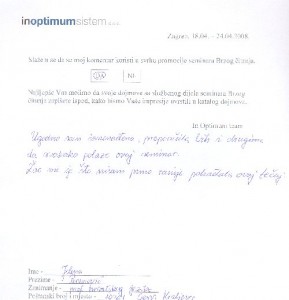 inoptimumsistem d.o.o.
Zagreb, 18.04. – 24.04.2008.
Može li se da se moj komentar koristi u svrhu promocije seminara Brzog čitanja.
DA NE
Najljepše Vas molimo da svoje dojmove sa službenog dijela seminara Brzog
čitanja zapišete ispod, kako bismo Vaše impresije uvrstili u katalog dojmova.
In Optimum team
Ugodno sam iznenađena, preporučila bih i drugima
da svakako polaze ovaj seminar.
Žao mi je što nisam prije ranije pohađala ovaj tečaj.
Ime -
Prezime -
Zanimanje - prof. hrvatskog jezika
Poštanski broj i mjesto -